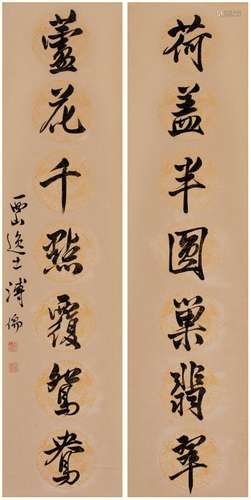 荷盖半圆巢翡翠
蘆花千點覆鴛鴦
西山逸士溥儒